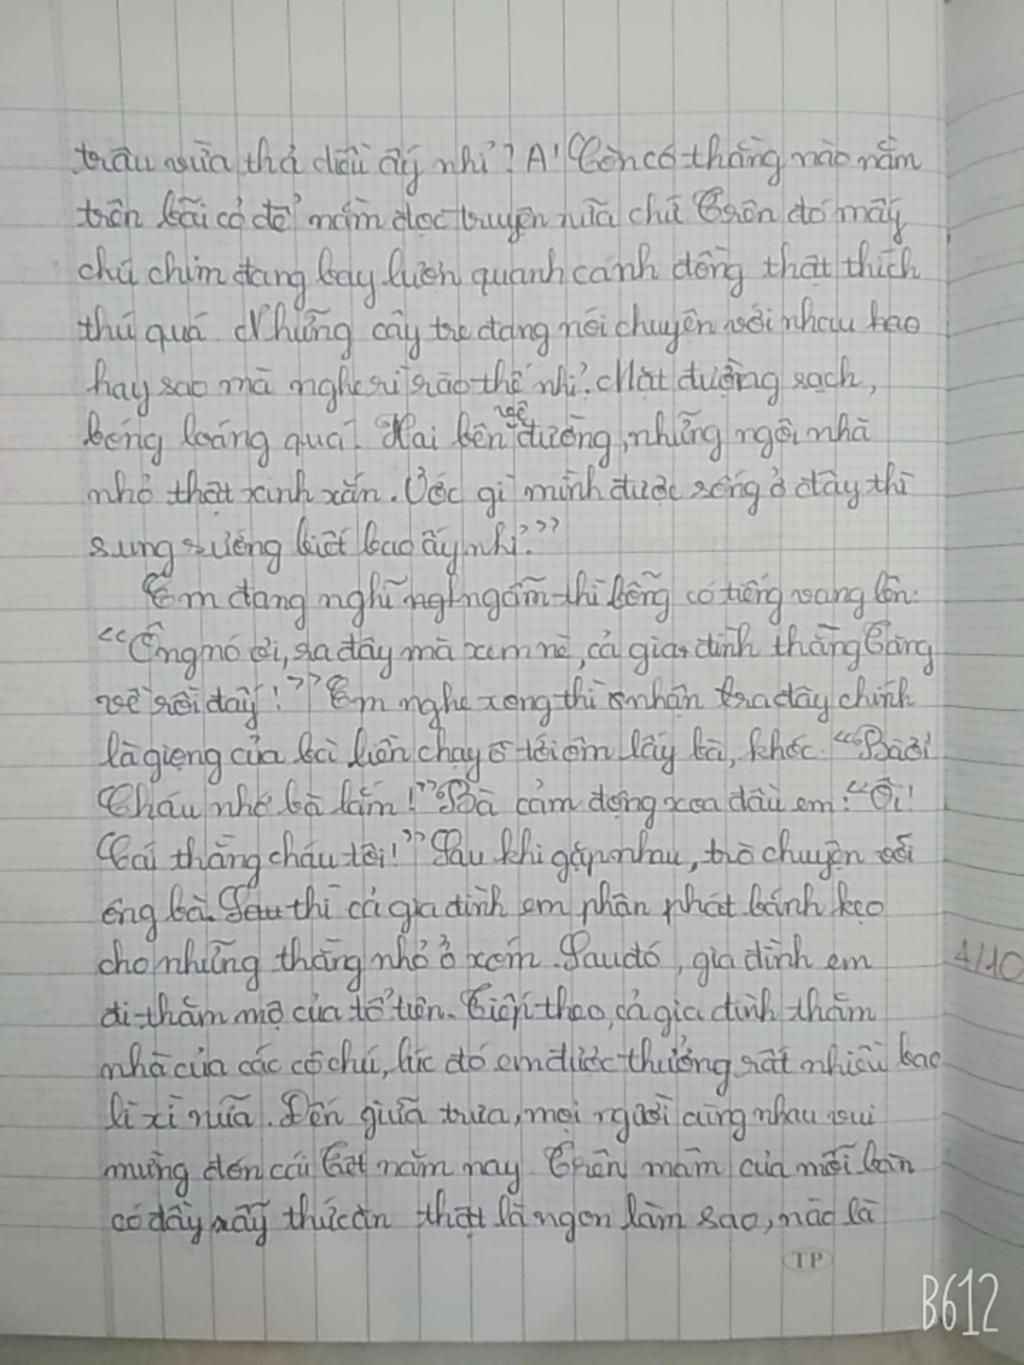 trâu vừa thả diều ấy nhỉ? A! Còn có thằng nào nằm
trên bãi cỏ để nằm đọc truyện nữa chứ. Trên đó mấy
chú chim đang bay lượn quanh cánh đồng thật thích
thú quá. Những cây tre đang nói chuyện với nhau hao
hay sao mà nghe rì rào thế nhỉ? Mặt đường sạch,
bóng loáng quá! Hai bên vệ đường, những ngôi nhà
nhỏ thật xinh xắn. Ước gì mình được sống ở đây thì
sung sướng biết bao ấy nhỉ?"
Em đang nghĩ ngẫm thì bỗng có tiếng vang lên:
"Ông nó ơi, ra đây mà xem nè, cả gia đình thằng
về rồi đấy!" Em nghe xong thì nhận ra đây chính
là giọng của bà liền chạy tới ôm lấy bà, khóc "Bà ơi!
Cháu nhớ bà lắm!" Bà cảm động xoa đầu em: "Ôi!
Cái thằng cháu tôi!" Sau khi gặp nhau, trò chuyện với
ông bà. Sau thì cả gia đình em phân phát bánh kẹo
cho những thằng nhỏ ở xóm. Sau đó, gia đình em
đi thăm mộ của tổ tiên. Tiếp theo, cả gia đình thăm
nhà của các cô chú, lúc đó em được thưởng rất nhiều bao
lì xì nữa. Đến giữa trưa, mọi người cùng nhau vui
mừng đón cái Tết năm nay. Trên mâm của mỗi bàn
có đầy rẫy thức ăn thật là ngon làm sao, nào là
4/10
TP
B612